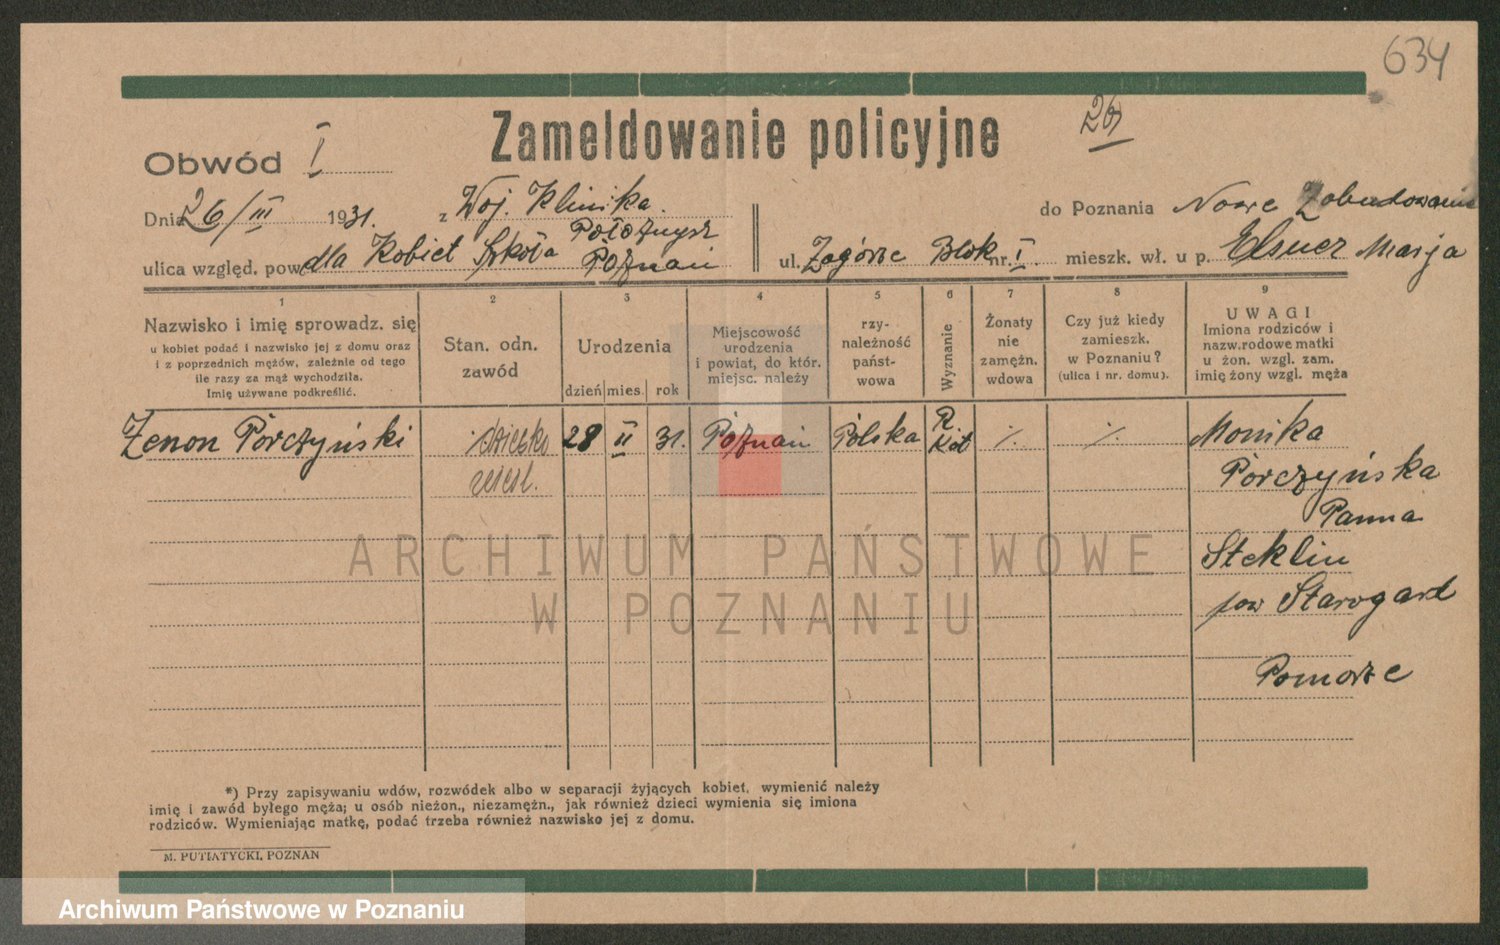 634
Zameldowanie policyjne
26
Obwód I
Dnia 26/III 1931. z Woj. Klinika. do Poznania Nowe Zabudowanie
ulica względ. pow. dla Kobiet Szkoła Położnysz Poznań ul. Zagórze Blok nr. I. mieszk. wł. u p. Elsner Marja
1 2 3 4 5 6 7 8 9
Nazwisko i imię sprowadz. się
u kobiet podać i nazwisko jej z domu oraz
i z poprzednich mężów, zależnie od tego
ile razy za mąż wychodziła.
Imię używane podkreślić.
Stan. odn.
zawód
Urodzenia
dzień mies. rok
Miejscowość
urodzenia
i powiat, do któr.
miejsc. należy
rzy-
należność
państ-
wowa
Wyznanie
Żonaty
nie
zamężn.
wdowa
Czy już kiedy
zamieszk.
w Poznaniu?
(ulica i nr. domu).
UWAGI
Imiona rodziców i
nazw.rodowe matki
u żon. wzgl. zam.
imię żony wzgl. męża
Zenon Pórczyński dziecko 28 II 31. Poznań Polska R Kat ·/. ·/. Monika
nieśl.
Pórczyńska
Panna
Steklin
pow Starogard
Pomorze
ARCHIWUM PAŃSTWOWE
W POZNANIU
*) Przy zapisywaniu wdów, rozwódek albo w separacji żyjących kobiet, wymienić należy
imię i zawód byłego męża; u osób nieżon., niezamężn., jak również dzieci wymienia się imiona
rodziców. Wymieniając matkę, podać trzeba również nazwisko jej z domu.
M. PUTIATYCKI, POZNAN
Archiwum Państwowe w Poznaniu